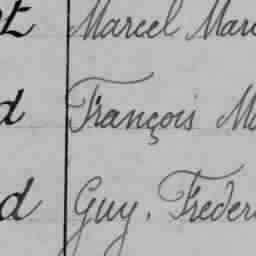 t Marcel Mar
d François M
d Guy. Freder